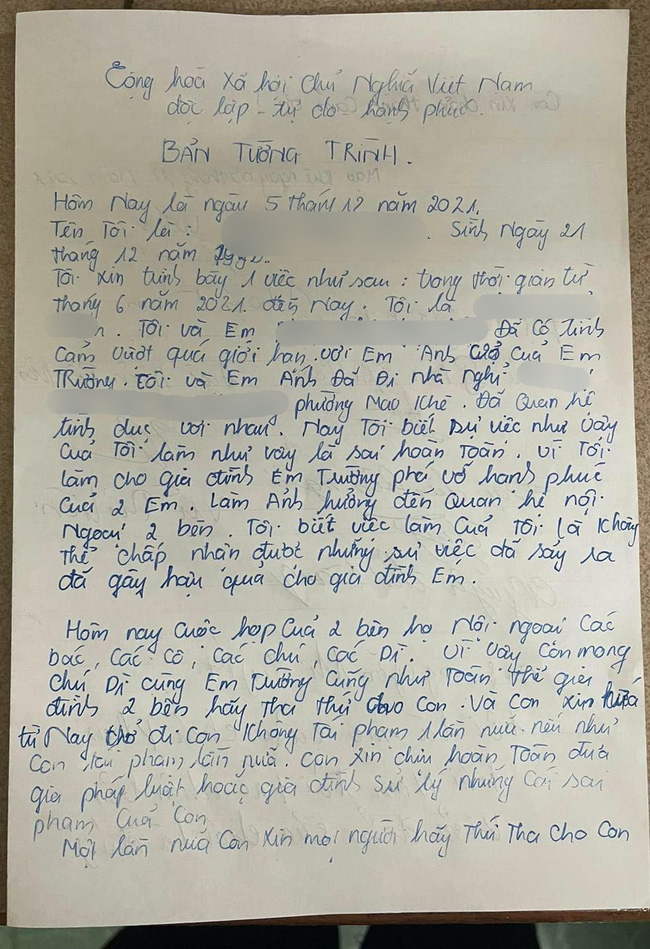 Cộng hoà Xã hội Chủ Nghĩa Việt Nam
độc lập - tự do hạnh phúc.
BẢN TƯỜNG TRÌNH.
Hôm Nay là ngày 5 tháng 12 năm 2021.
Tên Tôi là : Sinh Ngày 21
tháng 12 năm
Tôi xin trình bày 1 việc như sau : trong thời gian từ
tháng 6 năm 2021. đến Nay. Tôi là
Tôi và Em Đã Có tình
Cảm vượt quá giới hạn với Em Ánh vợ Của Em
Trường. Tôi và Em Ánh Đã Đi nhà Nghỉ
phường Mạo Khê. Đã Quan hệ
tình dục với nhau. Nay Tôi biết sự việc như vậy
Của Tôi làm như vậy là sai hoàn Toàn. vì Tôi
làm cho gia đình Em Trường phá vỡ hạnh phúc
Của 2 Em. Làm Ảnh hưởng đến Quan hệ nội.
Ngoại 2 bên. Tôi biết việc làm Của Tôi là Không
thể chấp nhận được những sự việc đã sảy ra
đã gây hậu quả cho gia đình Em.
Hôm nay Cuộc họp Của 2 bên họ Nội ngoại Các
bác, Các Cô, Các chú, Các Dì. Vì vậy Con mong
Chú Dì cùng Em Trường Cũng như Toàn thể gia
đình 2 bên hãy Tha thứ cho Con. Và Con xin hứa
từ Nay trở đi Con Không Tái phạm 1 lần nữa. nếu như
Con tái phạm lần nữa. Con xin chịu hoàn Toàn đưa
gia pháp luật hoặc gia đình sử lý những Cái sai
phạm Của Con
Một lần nữa Con Xin mọi người hãy Thứ Tha Cho Con